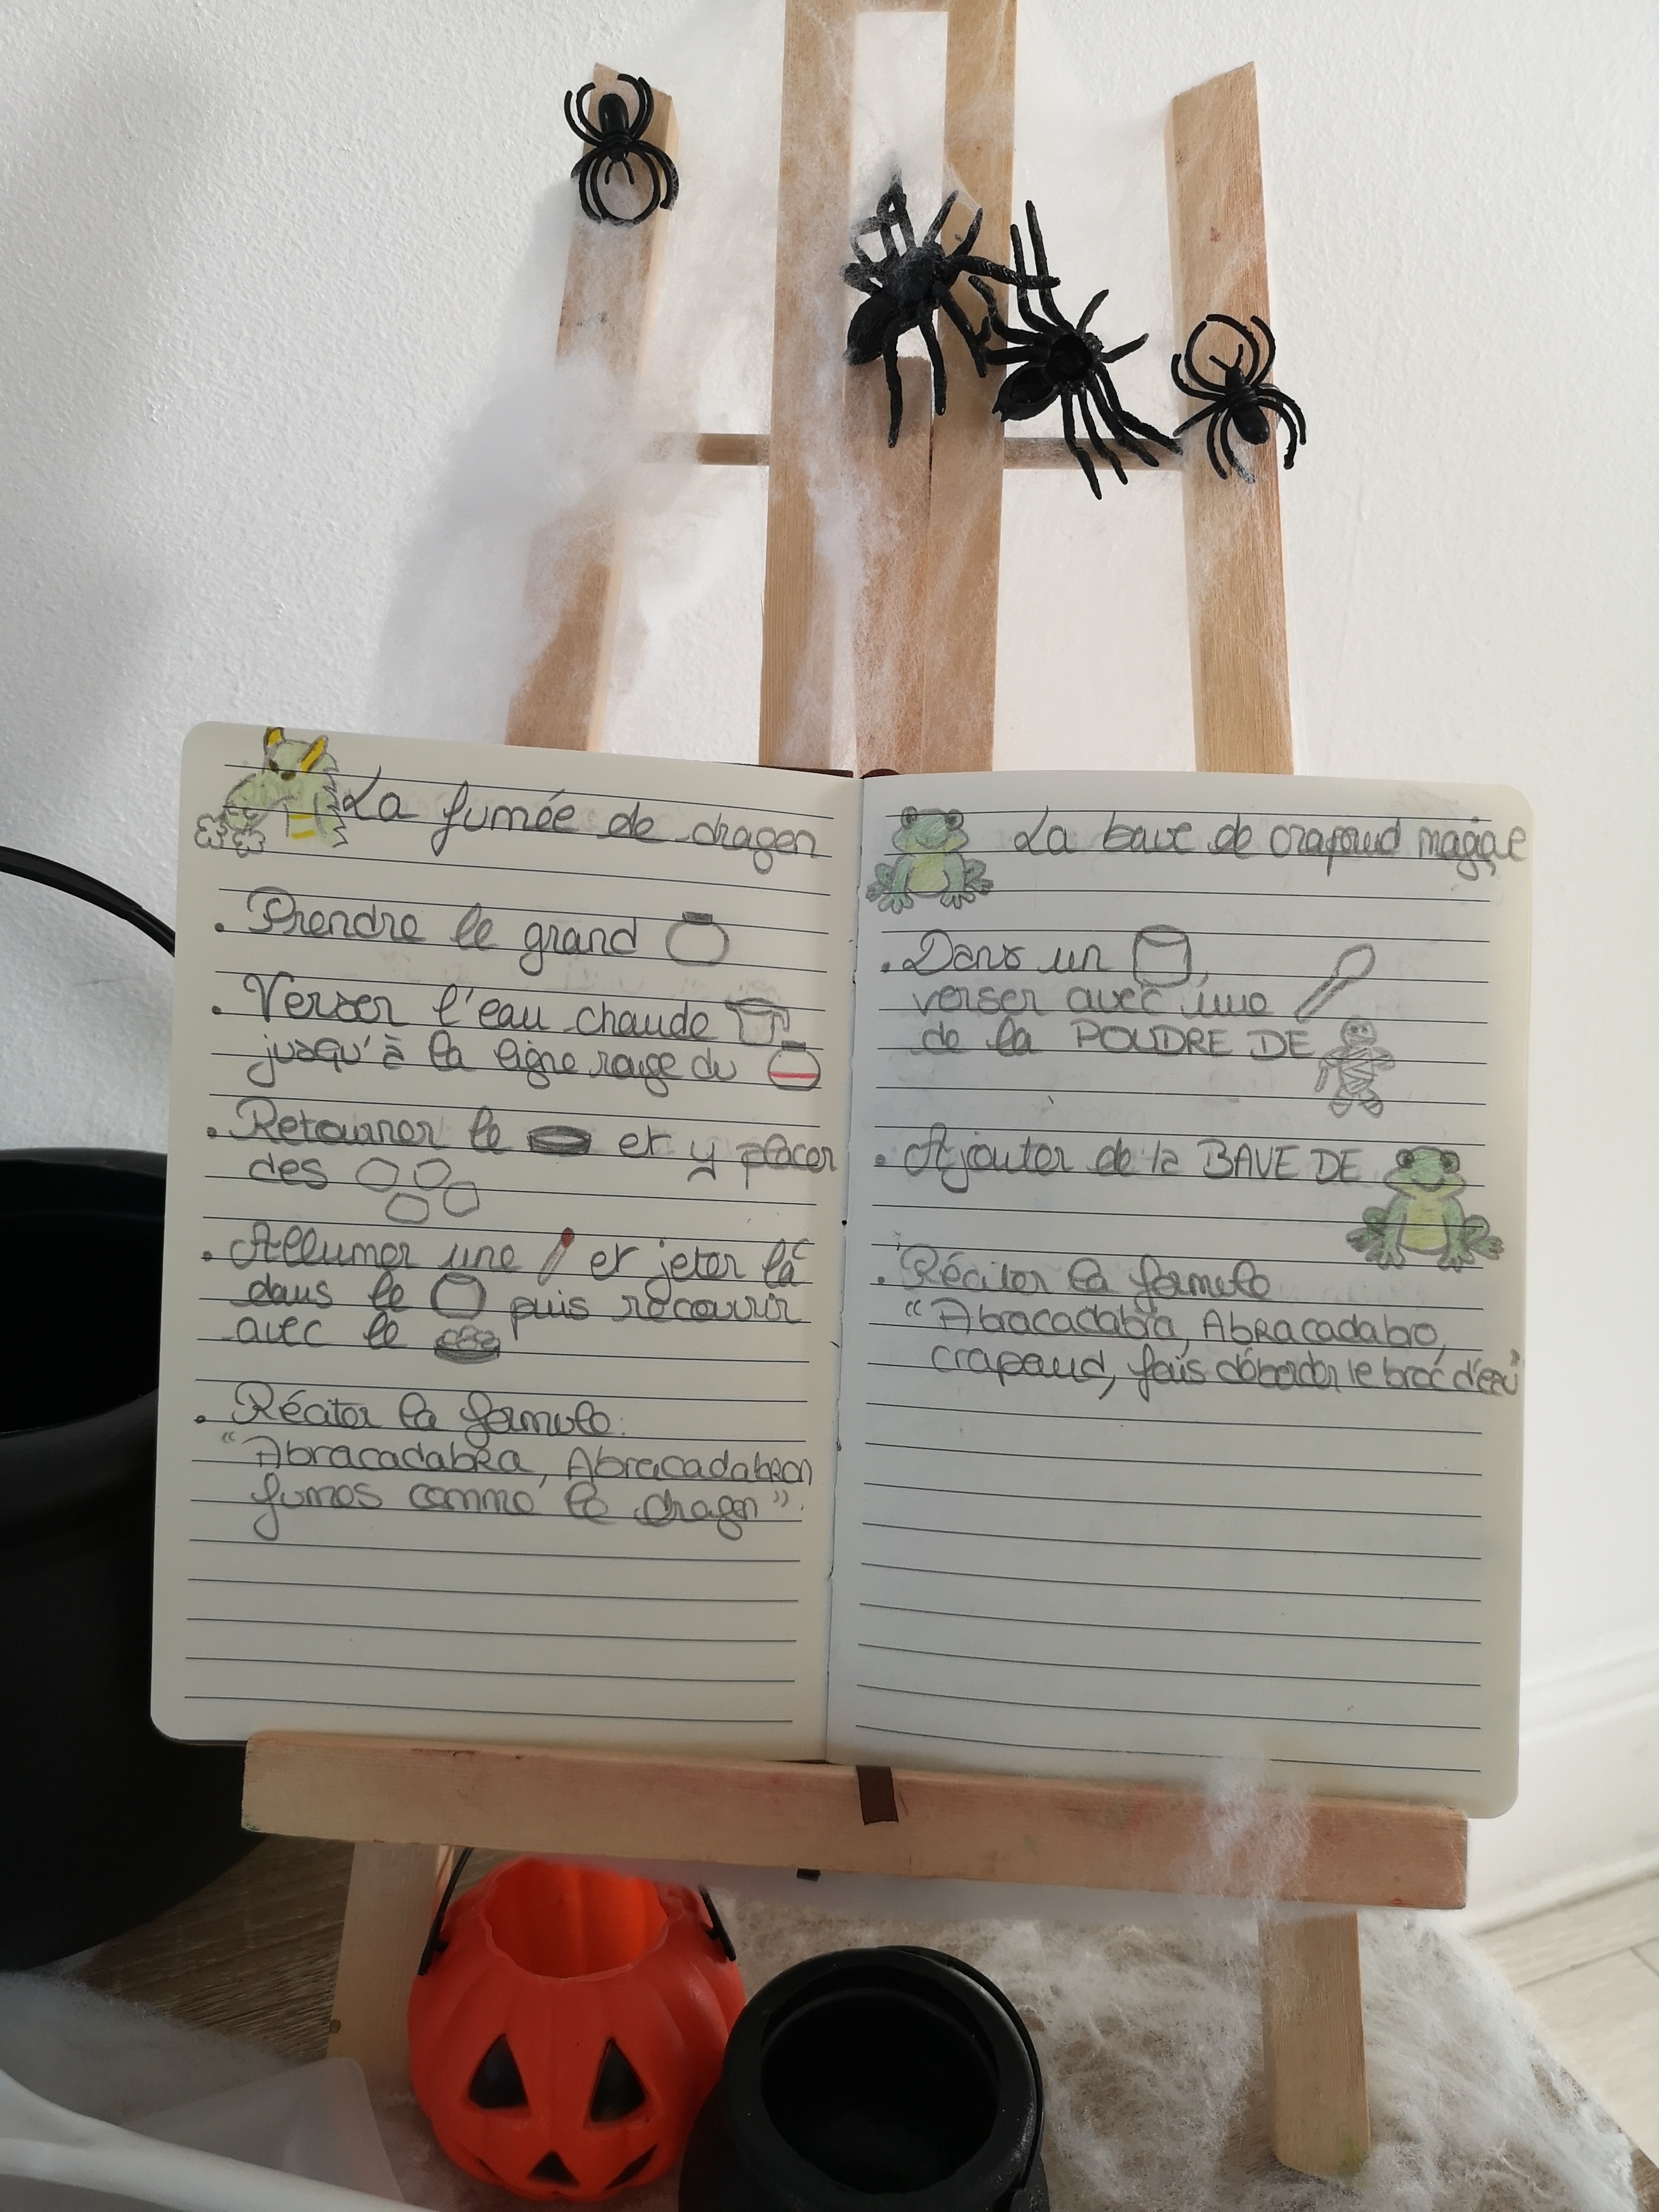 La fumée de dragon
. Prendre le grand
. Verser l'eau chaude
jusqu'à la ligne rouge du
. Retourner le et y placer
des
. Allumer une et jeter là
dans le puis recouvrir
avec le
. Réciter la formule:
"Abracadabra, Abracadabron
fumes comme le dragon".
La bave de crapaud magique
. Dans un ,
verser avec une
de la POUDRE DE
. Ajouter de la BAVE DE
. Réciter la formule
"Abracadabra, Abracadabro,
crapaud, fais déborder le broc d'eau"